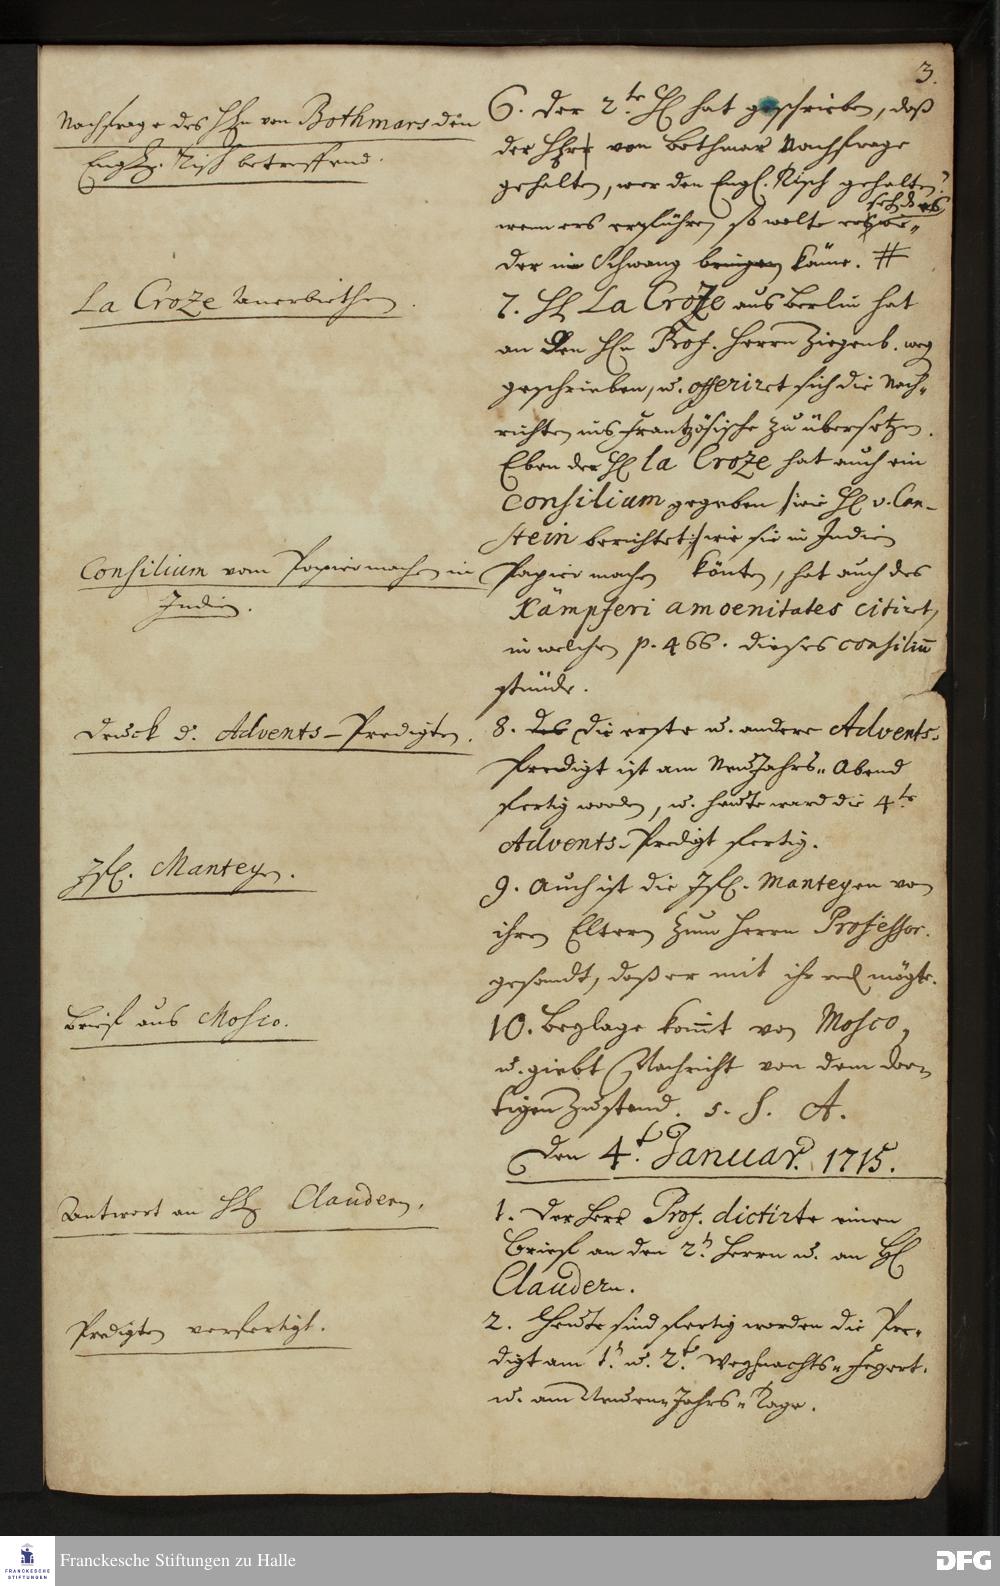 3.
Nachfrage des HEn von Bothmars den
Engl. Tisch betreffend.
6. Der 2.te H. hat geschrieben, daß
der Herr von Bothmar Nachfrage
gehalten, wer den Engl. Tisch gehalten?
wenn ers erführe, so wolte er sehen das es wie„
der in Schwang bringen käme. #
La Croze Anerbiethen.
7. H. La Croze aus Berlin hat
an den Hn Prof. Herrn Ziegenb. weg
geschrieben, u. offeriret sich die Nach„
richten ins Frantzösische zu übersetzen.
Eben der H. la Croze hat auch ein
Consilium gegeben /: wie H. v. Can-
stein berichtet :/ wie sie in Indien
Consilium vom Papiermachen in
Indien.
Papier machen könten, hat auch des
Kämpferi amoenitates citiret,
in welchen p. 466. dieses consiliū
stünde.
Druck d. Advents-Predigten.
8. Des Die erste u. andere Advents-
Predigt ist am Neu Jahrs„ Abend
fertig worden, u. heute ward die 4.te
Advents-Predigt fertig.
Jfl. Manteyn.
9. Auch ist die Jfl. Manteyen von
ihren Eltern zum Herrn Professor.
gesandt, daß er mit ihr red. mögte.
Brief aus Mosco.
10. Beylage komt von Mosco,
u. giebt Nachricht von dem dor„
tigen Zustand. s. S. A.
Den 4.t Januar. 1715.
Antwort an H. Claudern.
1. Der Herr Prof. dictirte einen
Brief an den 2.n Herrn u. an H.
Claudern.
Predigten verfertigt.
2. Heute sind fertig worden die Pre„
digt am 1.n u. 2.t Weyhnachts„ Feyert.
u. am Neuen Jahrs„ Tage.
FRANCKESCHE
STIFTUNGEN
Franckesche Stiftungen zu Halle
DFG